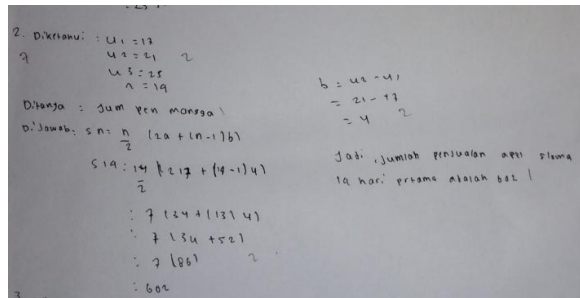 2. Diketahui : U1 = 17
7 U2 = 21 2
U3 = 25
n = 14
b = U2 - U1
= 21 - 17
= 4 2
Ditanya : Jum pen mangga 1
Dijawab : Sn = n/2 (2a + (n-1) b)
S14 : 14/2 (2.17 + (14-1) 4)
: 7 (34 + (13) 4)
: 7 (34 + 52)
: 7 (86) 2
: 602
Jadi, jumlah penjualan apel slama
14 hari prtama adalah 602 1
3.